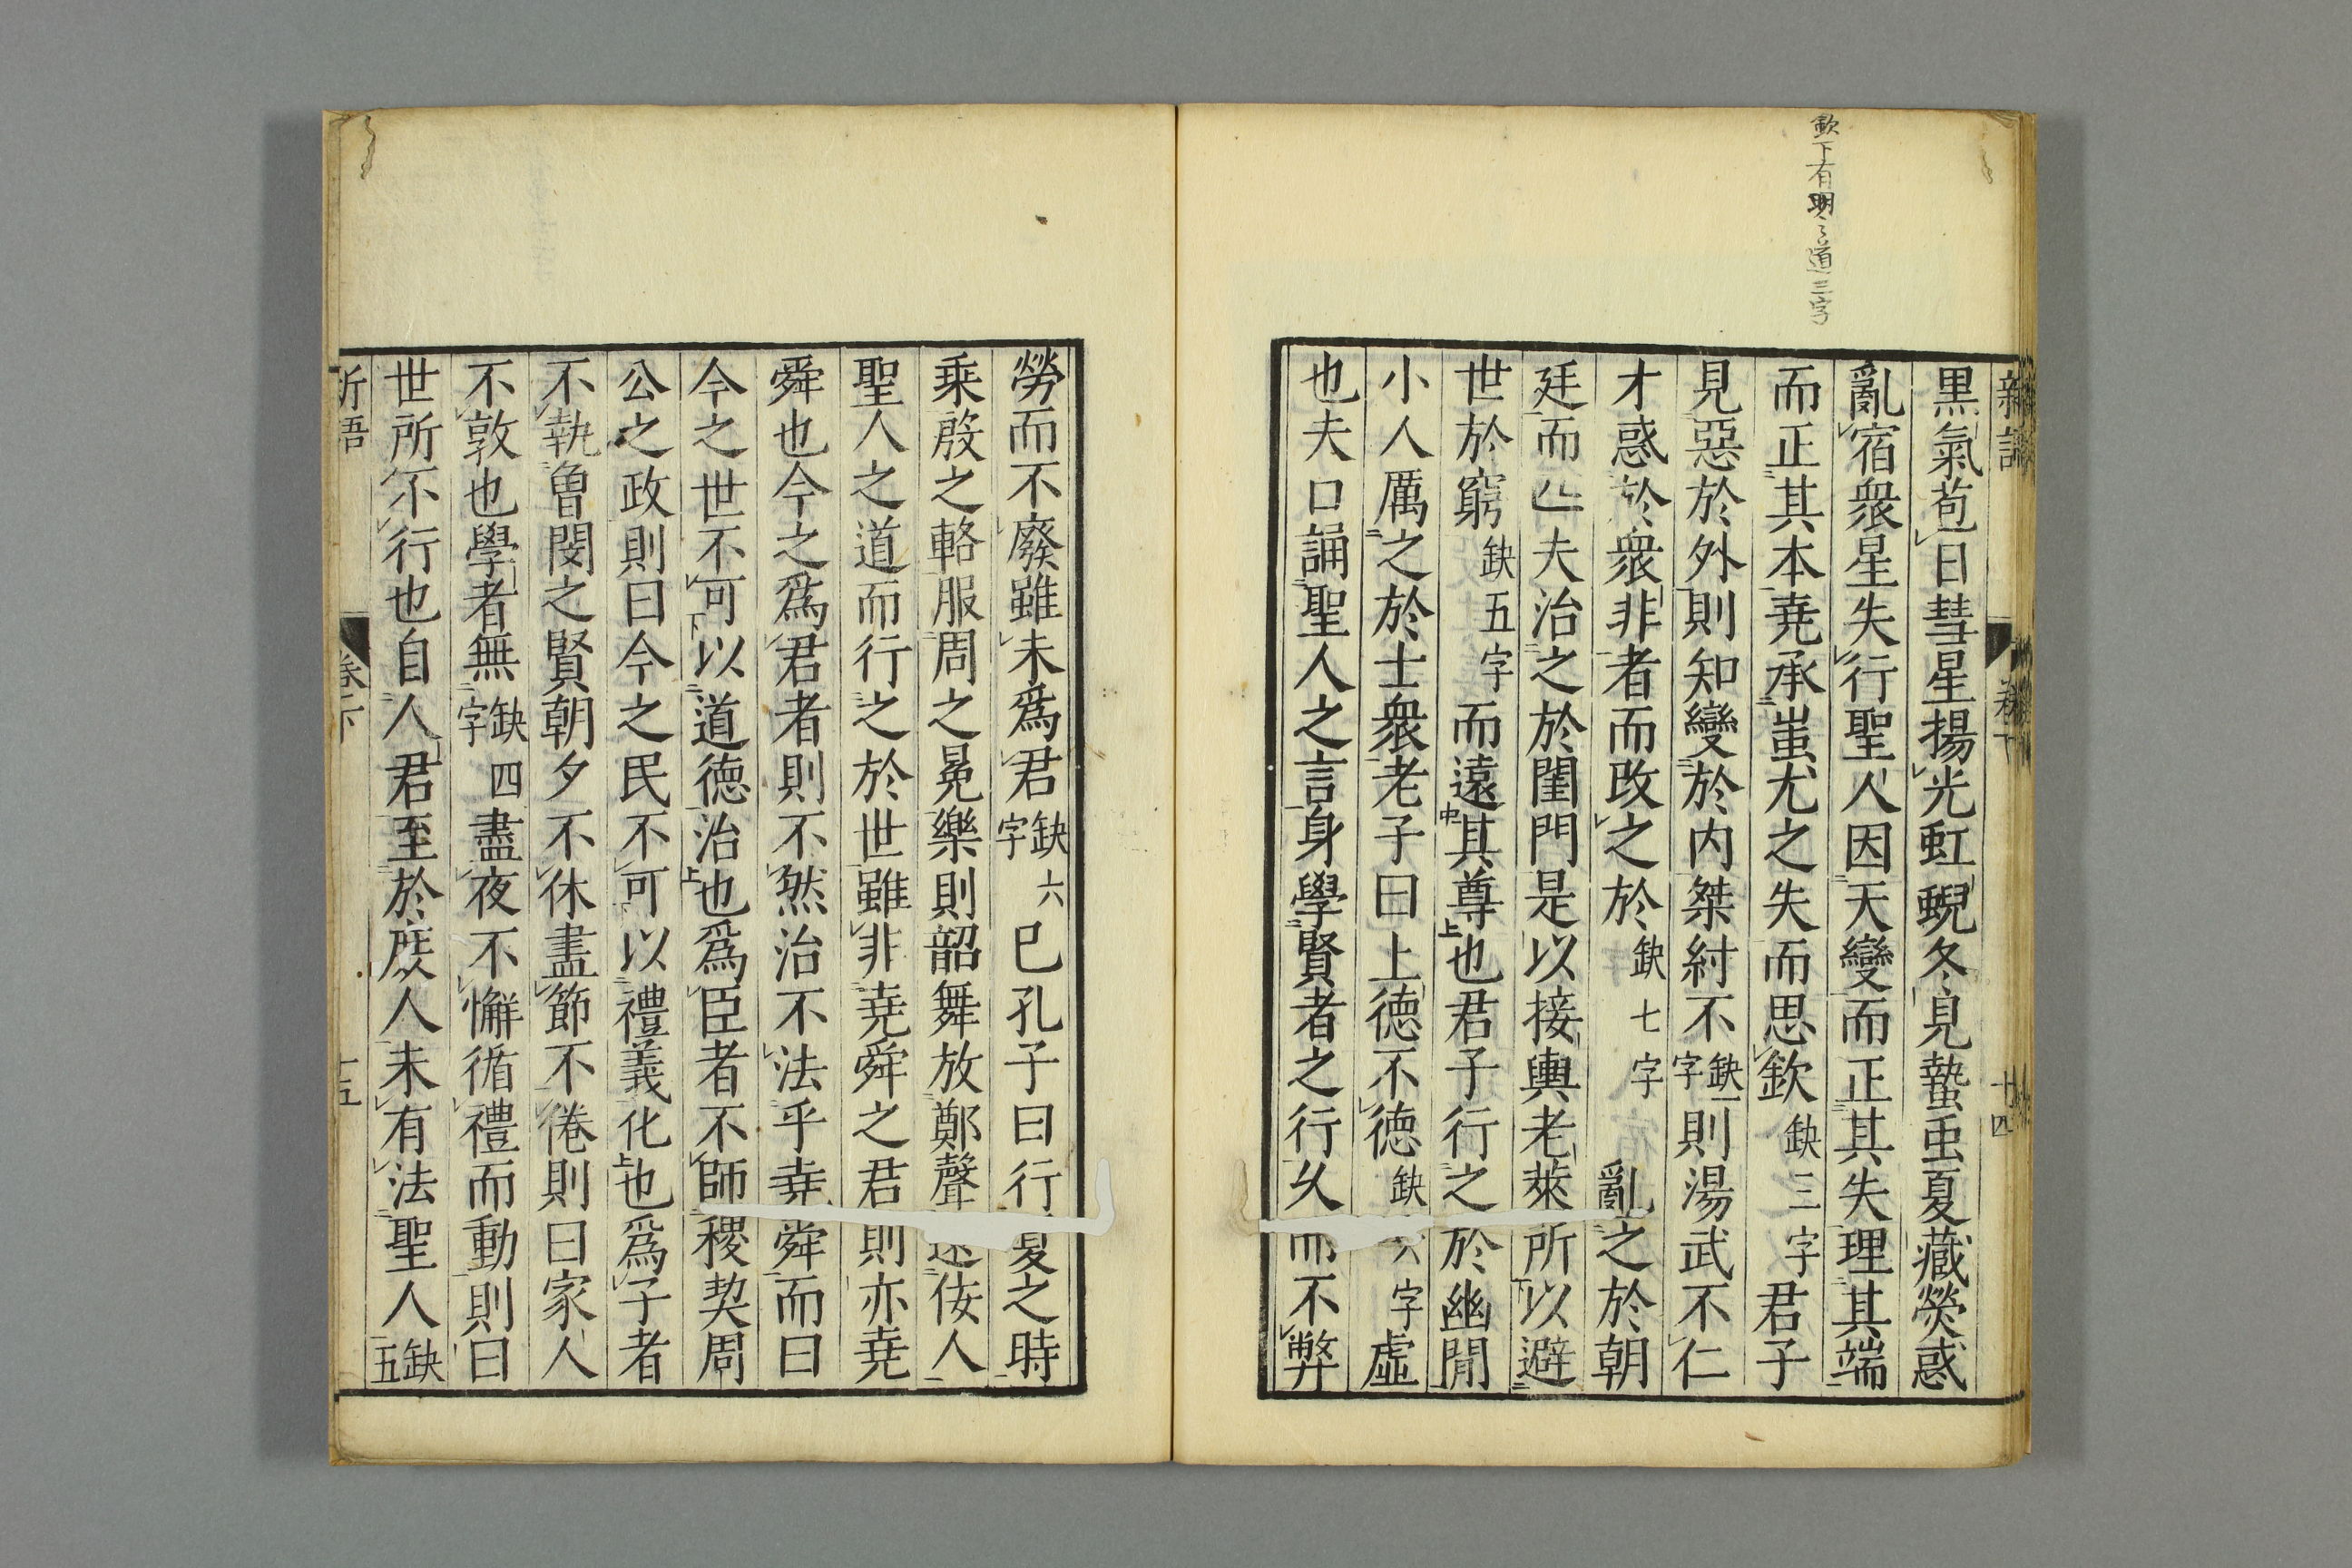 欽下有明々道三字
新語 卷下 十四
黒氣苞日彗星揚光虹蜺冬見蟄虫夏藏熒惑
亂宿衆星失行聖人因天變而正其失理其端
而正其本堯承蚩尤之失而思欽缺三字君子
見惡於外則知變於内桀紂不缺一字則湯武不仁
才惑於衆非者而改之於缺七字亂之於朝
廷而匹夫治之於閨門是以接輿老萊所以避
世於窮缺五字而遠其尊也君子行之於幽間
小人厲之於士衆老子曰上德不德缺六字虛
也夫口誦聖人之言身學賢者之行久而不弊
勞而不廢雖未爲君缺六字已孔子曰行夏之時
乗殷之輅服周之冕樂則韶舞放鄭聲遠佞人
聖人之道而行之於世雖非堯舜之君則亦堯
舜也今之爲君者則不然治不法乎堯舜而曰
今之世不可以道德治也爲臣者不師稷契周
公之政則曰今之民不可以禮義化也爲子者
不執曾閔之賢朝夕不休盡節不倦則曰家人
不敦也學者無缺四字盡夜不懈循禮而動則曰
世所不行也自人君至於庶人未有法聖人缺五
新語 卷下 十五